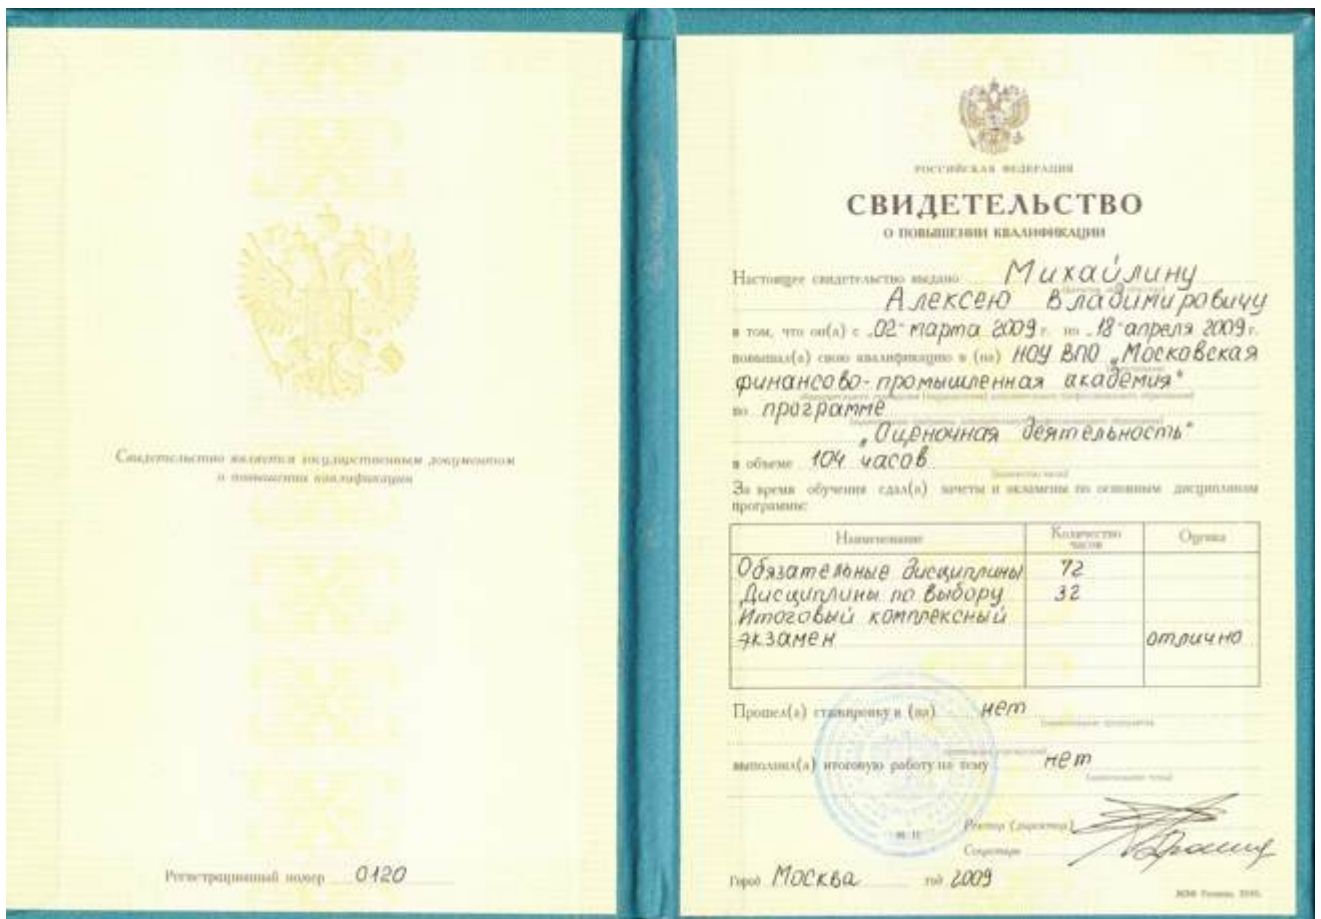 Свидетельство является государственным документом
о повышении квалификации
Регистрационный номер 0120
РОССИЙСКАЯ ФЕДЕРАЦИЯ
СВИДЕТЕЛЬСТВО
О ПОВЫШЕНИИ КВАЛИФИКАЦИИ
Настоящее свидетельство выдано Михайлину
Алексею Владимировичу
в том, что он(а) с „02" марта 2009 г. по „18" апреля 2009 г.
повышал(а) свою квалификацию в (на) НОУ ВПО „Московская
финансово-промышленная академия"
по программе
„Оценочная деятельность"
в объеме 104 часов
(количество часов)
За время обучения сдал(а) зачеты и экзамены по основным дисциплинам
программы:
Наименование Количество часов Оценка
Обязательные дисциплины 72
Дисциплины по выбору 32
Итоговый комплексный
экзамен отлично
Прошел(а) стажировку в (на) нет
(наименование предприятия,
выполнил(а) итоговую работу на тему нет
(наименование темы)
М. П. Ректор (директор)
Секретарь
Город Москва год 2009